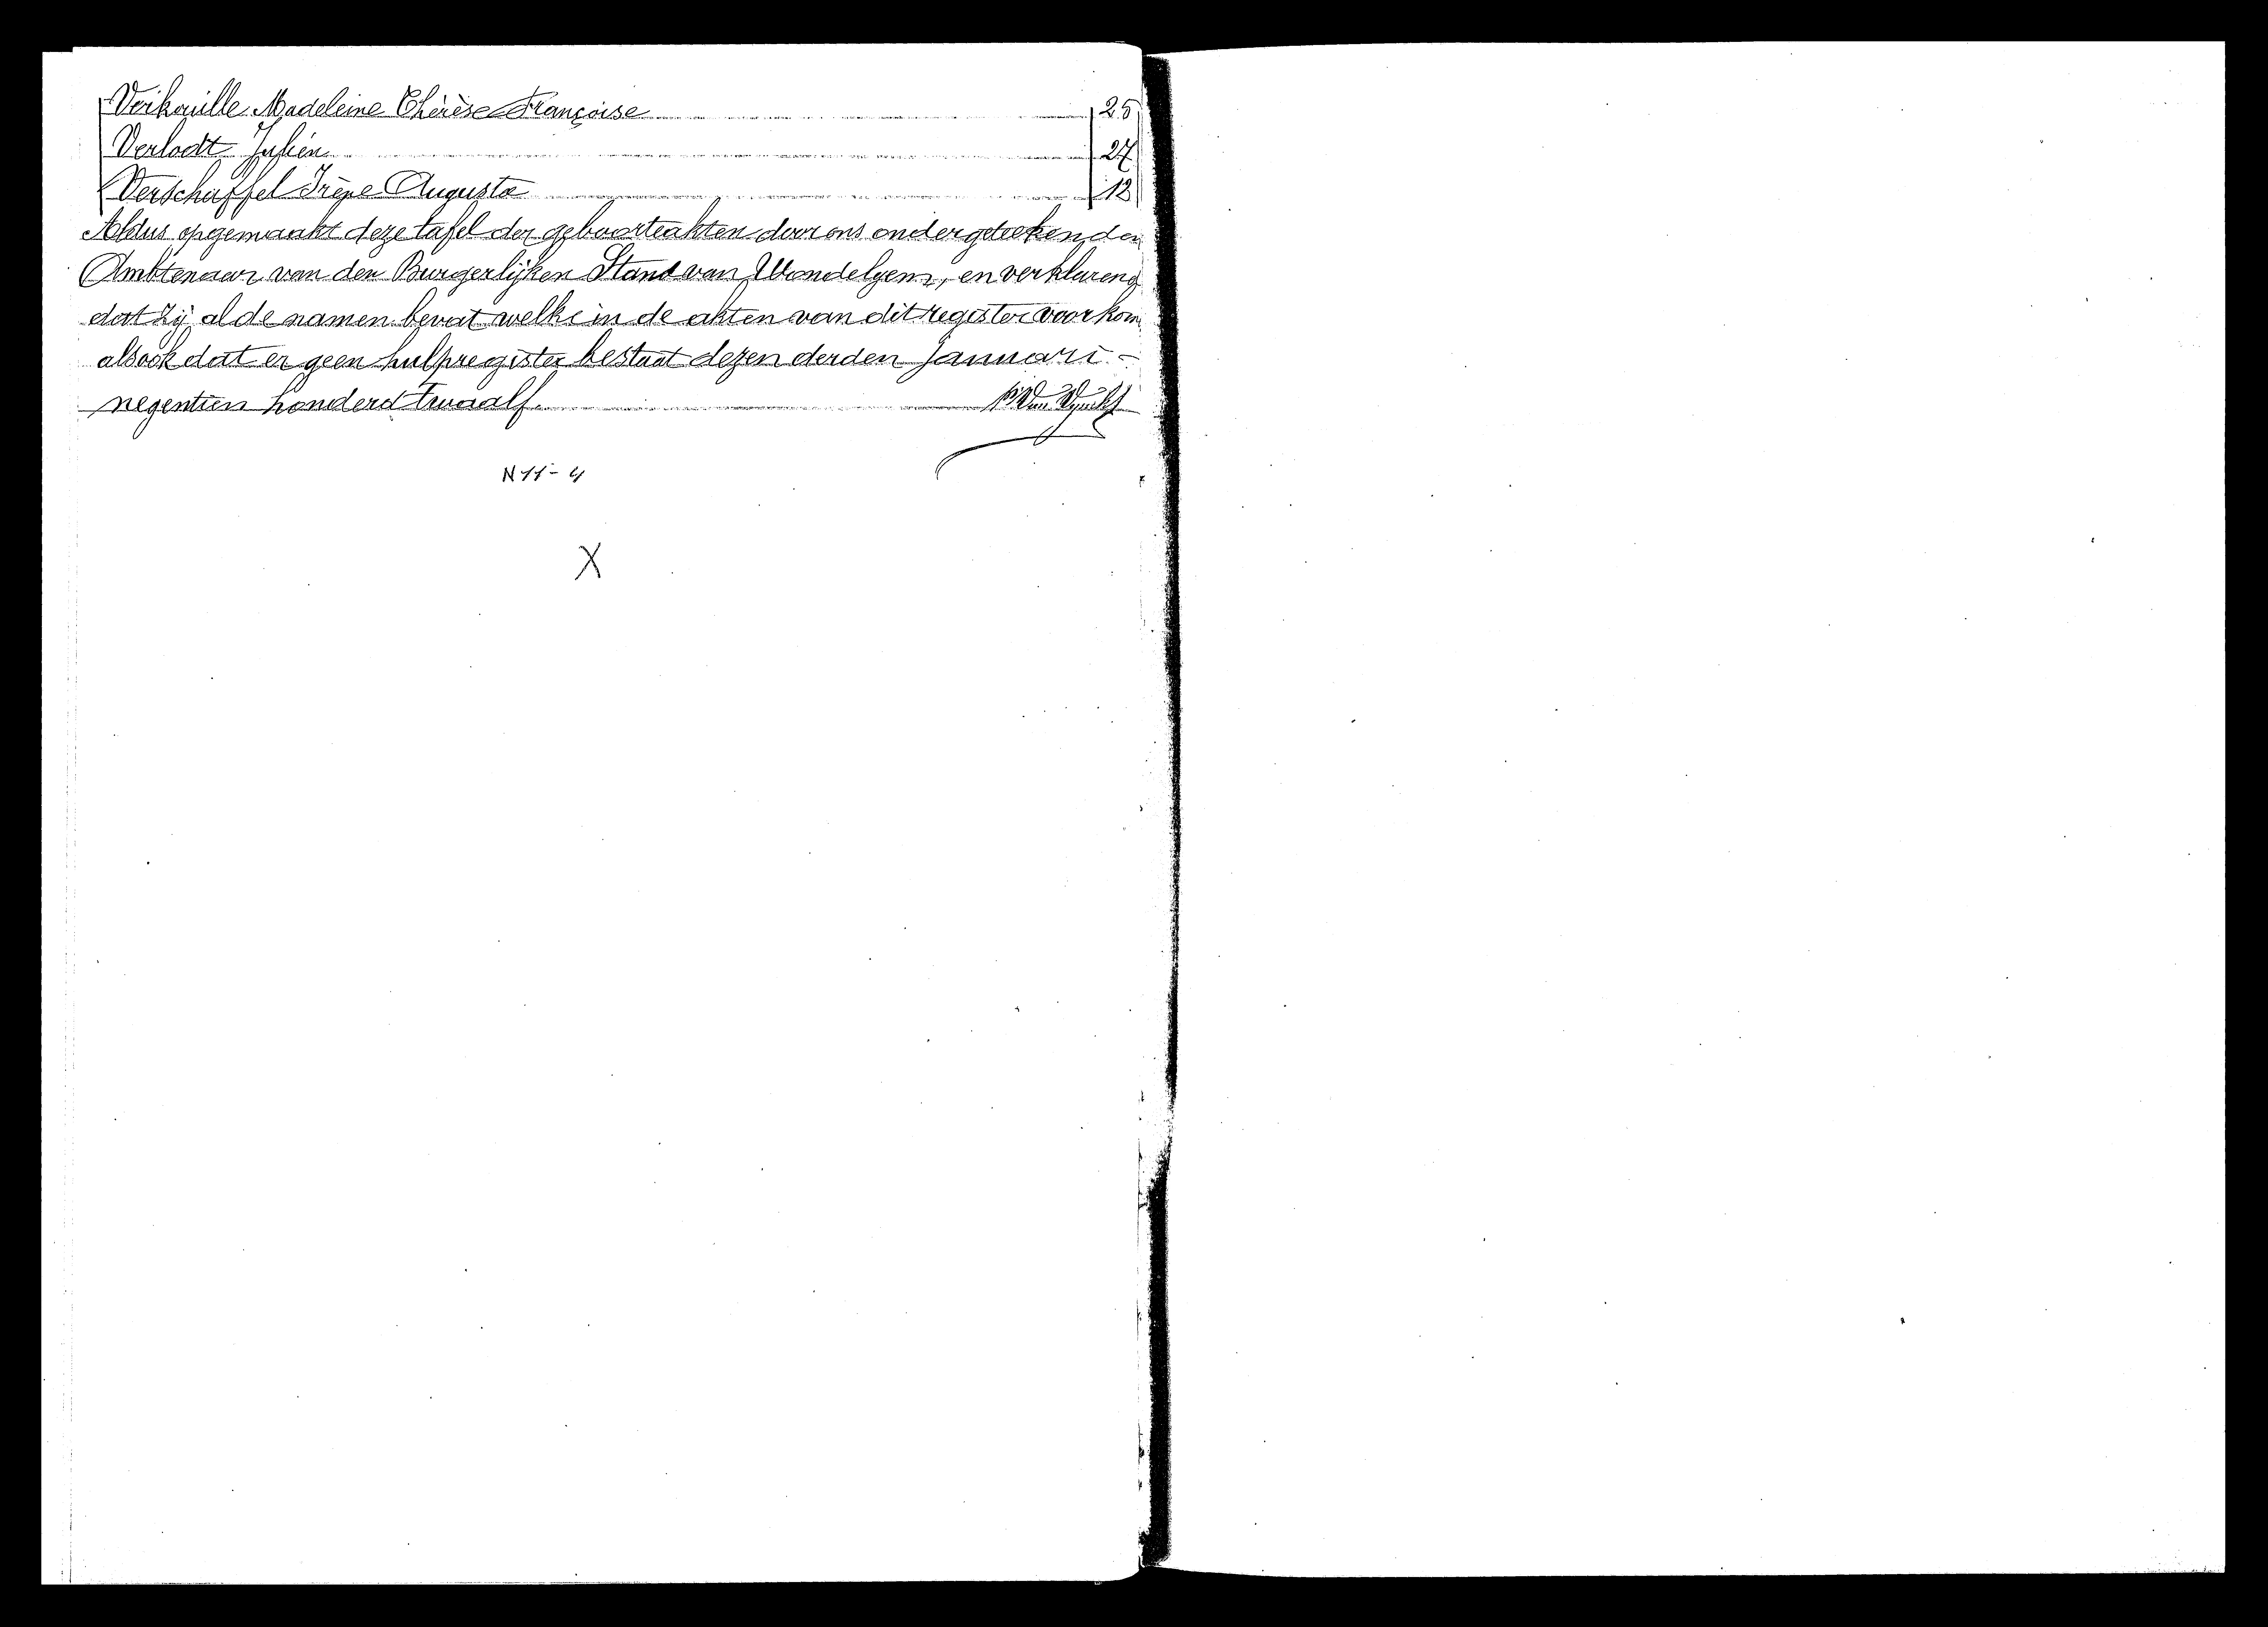 Verkouille Madeleine Thérèse Françoise 25
Verlodt Julien 27
Verschaffel Irène Augusta 12
Aldus opgemaakt deze tafel der geboorteakten door ons ondergeteekenden
Ambtenaar van den Burgerlijken Stand van Wondelgem, en verklarend
dat zij al de namen bevat welke in de akten van dit register voorkom
alsook dat er geen hulpregister bestaat dezen derden Januari -
negentien honderd twaalf.
N 11 - 4
X